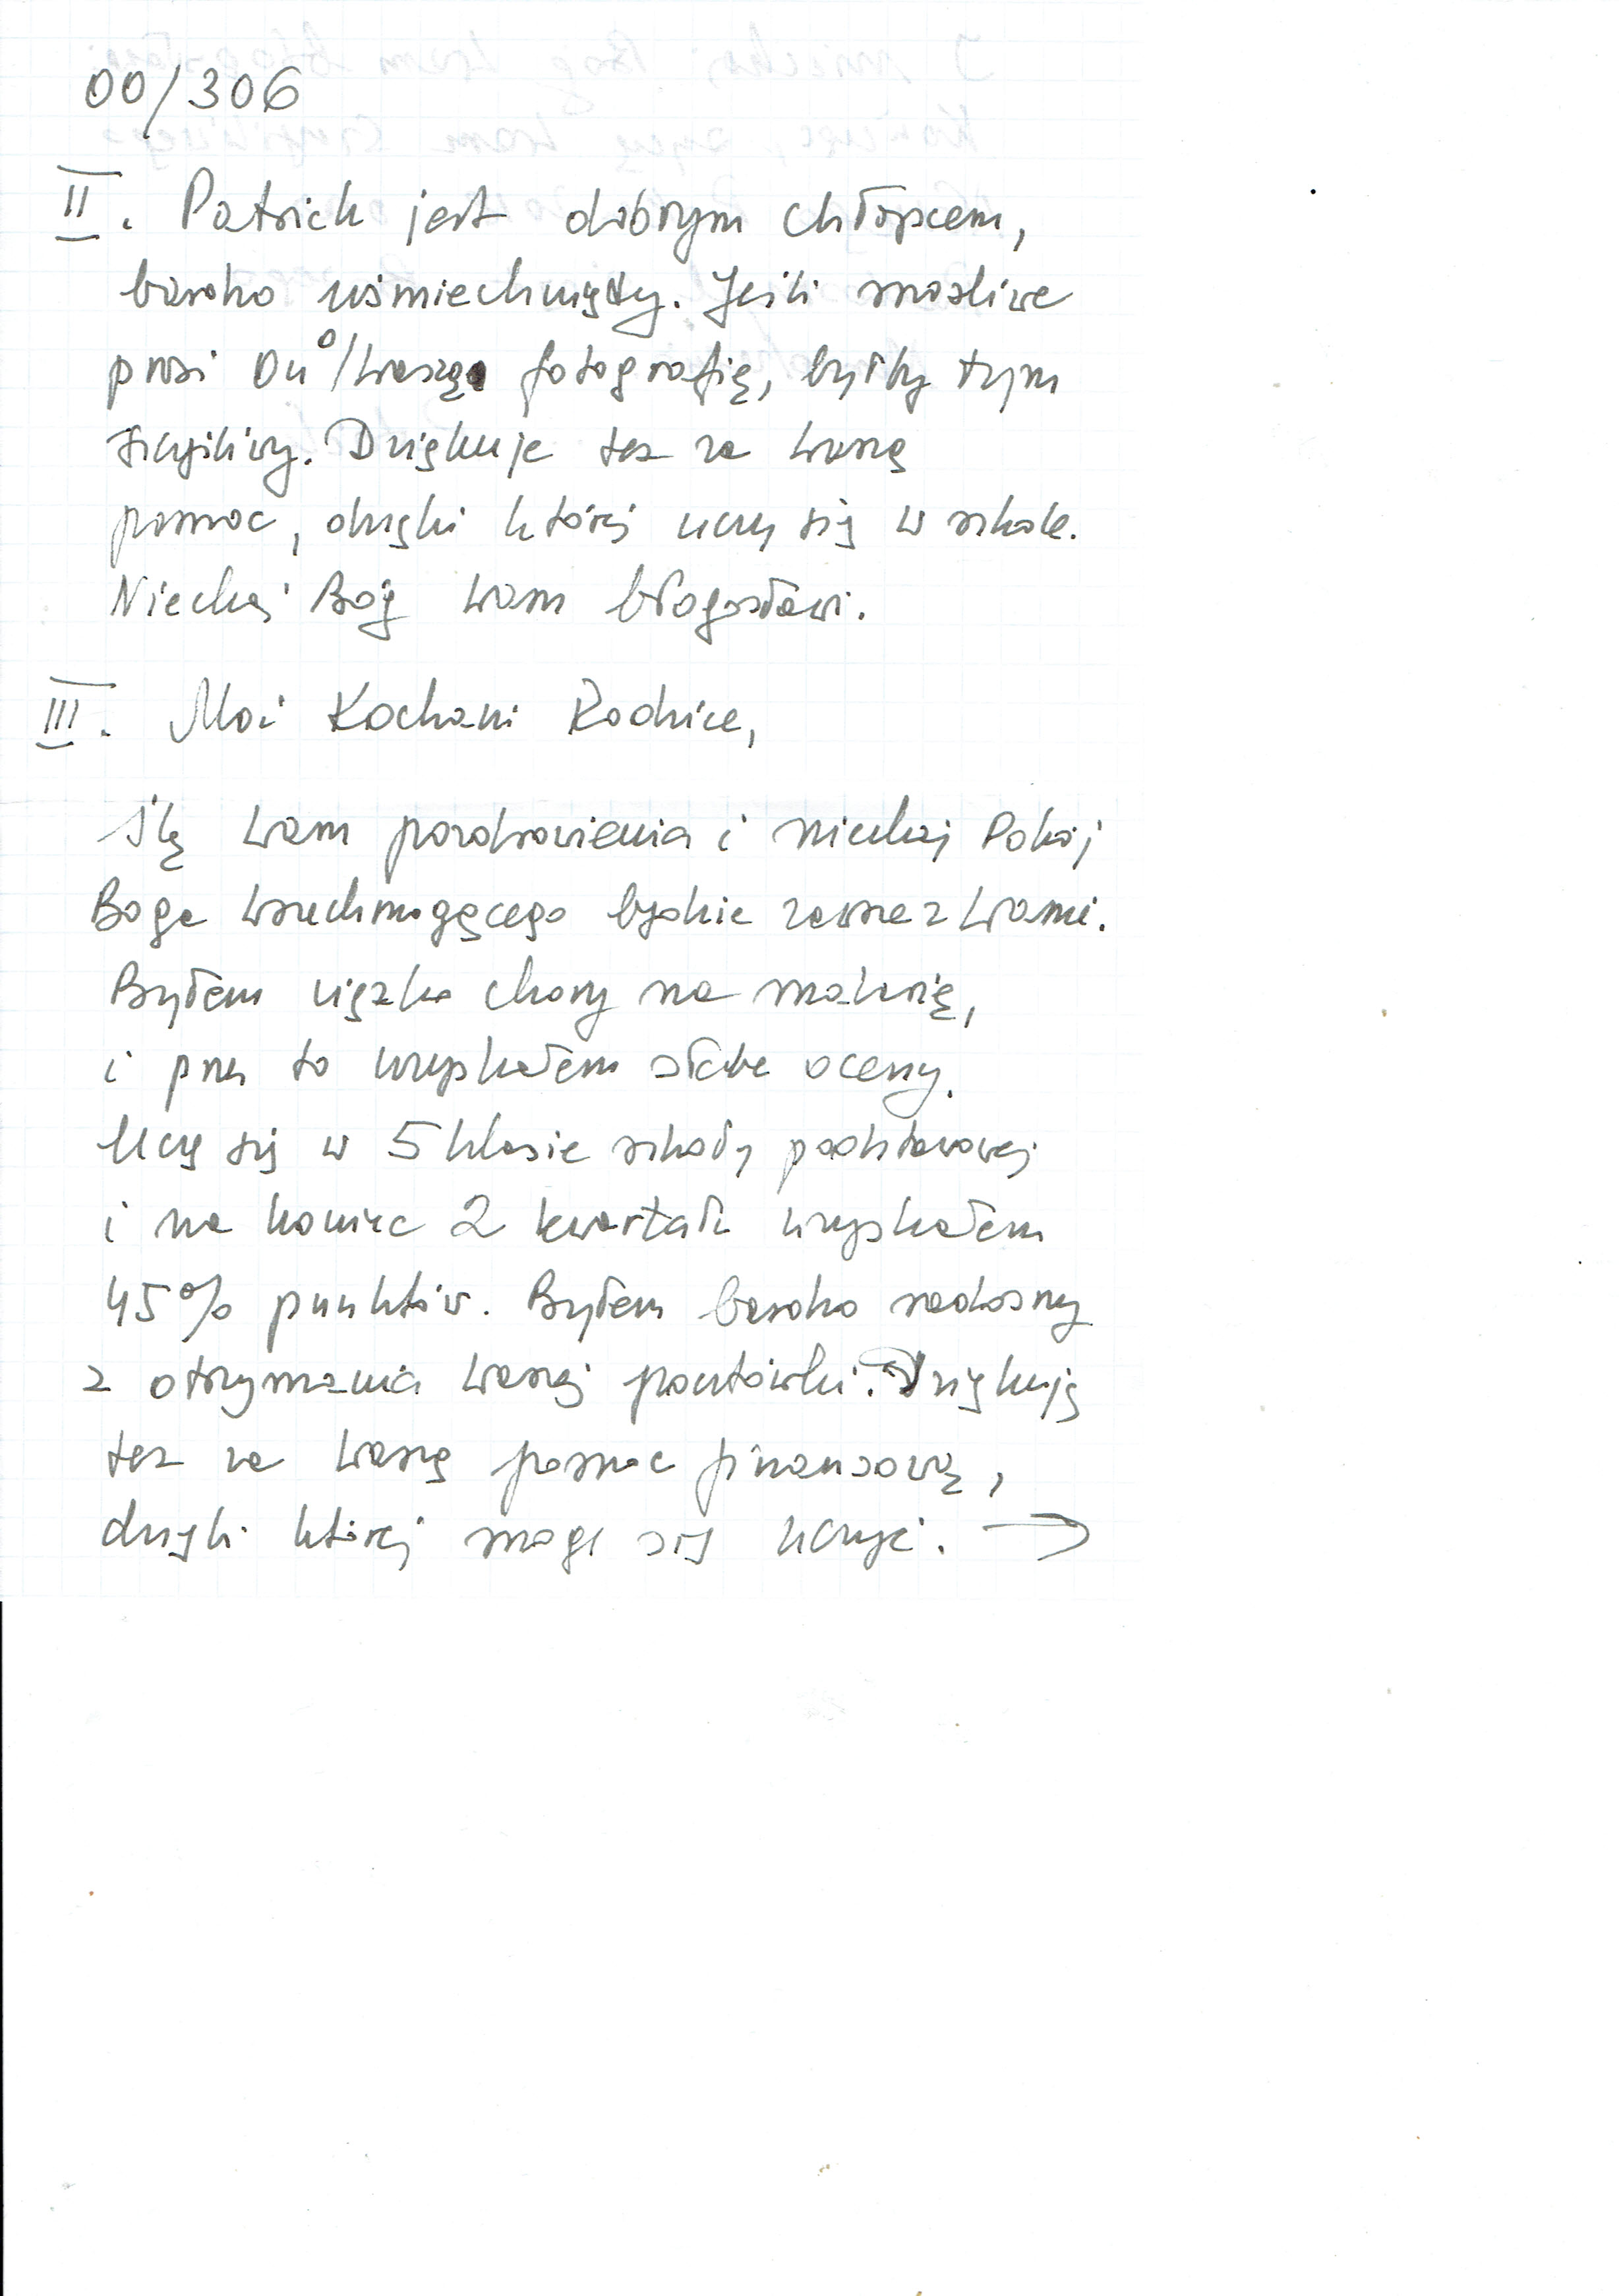 00/306
II. Patrick jest dobrym chłopcem,
bardzo uśmiechnięty. Jeśli możliwe
prosi On o/Waszą fotografię, byłby tym
szczęśliwy. Dziękuje też za Waszą
pomoc, dzięki której uczy się w szkole.
Niechaj Bóg Wam błogosławi.
III. Moi Kochani Rodzice,
Ślę Wam pozdrowienia i niechaj Pokój
Boga Wszechmogącego będzie zawsze z Wami.
Byłem ciężko chory na malarię,
i przez to uzyskałem słabe oceny.
Uczę się w 5 klasie szkoły podstawowej
i na koniec 2 kwartału uzyskałem
45% punktów. Byłem bardzo radosny
z otrzymania Waszej pocztówki. Dziękuję
też za Waszą pomoc finansową,
dzięki której mogę się uczyć. →